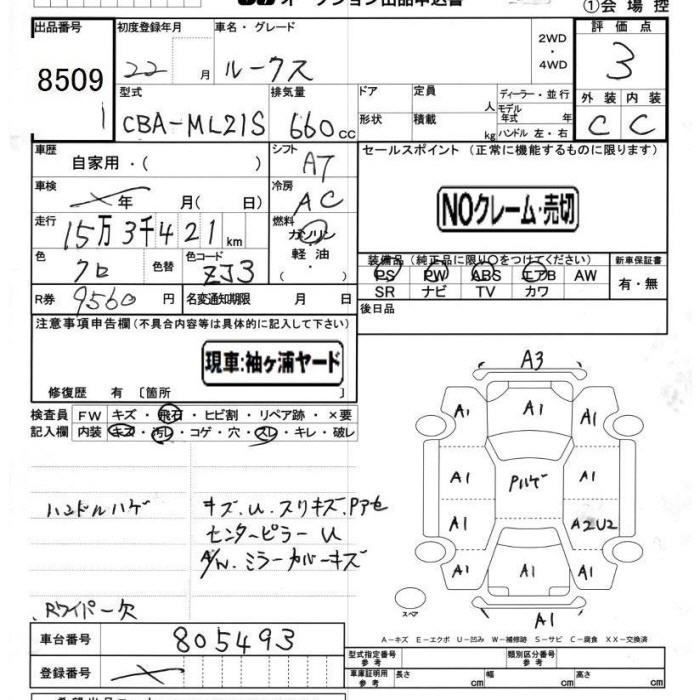 オークション出品申込書
①会場控
出品番号 初度登録年月 車名・グレード 評価点
8509 22 月 ルークス 2WD ・ 4WD 3
1
型式 排気量 ドア 定員 人 ディーラー・並行 外装 内装
CBA-ML21S 660 cc 形状 積載 kg モデル年式 年 ハンドル 左・右 C C
車歴 シフト セールスポイント (正常に機能するものに限ります)
自家用・( ) AT
車検 冷房
年 月( 日) AC NOクレーム・売切
走行 燃料
15万3千421 km ガソリン・軽油・( )
装備品 (純正品に限り○をつけてください) 新車保証書
色 色替 色コード PS PW ABS エアB AW 有・無
クロ ZJ3 SR ナビ TV カワ
R券 9560 円 名変通知期限 月 日 後日品
注意事項申告欄 (不具合内容等は具体的に記入して下さい)
現車:袖ヶ浦ヤード
修復歴 有 〔箇所 〕
検査員 FW キズ・飛石・ヒビ割・リペア跡・×要
記入欄 内装 キズ・汚レ・コゲ・穴・スレ・キレ・破レ
A3
A1 A1 A1
A1 Pハゲ A1
A1 A2U2
A1 A1 A1
A1
スペア
ハンドルハゲ キズ.U.スリキズ.Pアセ
センターピラー U
A/W. ミラーカバーキズ
Rワイパー欠
A－キズ E－エクボ U－凹み W－補修跡 S－サビ C－腐食 XX－交換済
車台番号 805493
型式指定番号 参考 類別区分番号 参考
登録番号
車庫証明用 参考 長さ cm 幅 cm 高さ cm